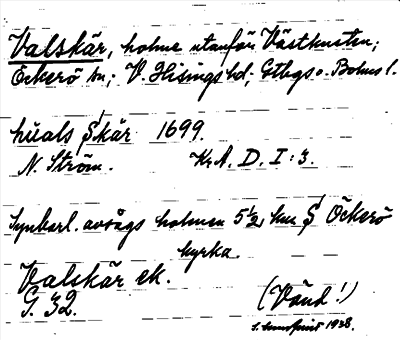 Valskär, holme utanför Västkusten;
Öckerö sn; V. Hisings hd; Gtbgs o. Bohus l.
hùals Skär 1699.
N. Ström. Kr. A. D. I: 3.
Synbarl. avsågs holmen 5 1/2 km S Öckerö
kyrka.
Valskär ek.
G. 32.
(Vänd!)
1938.